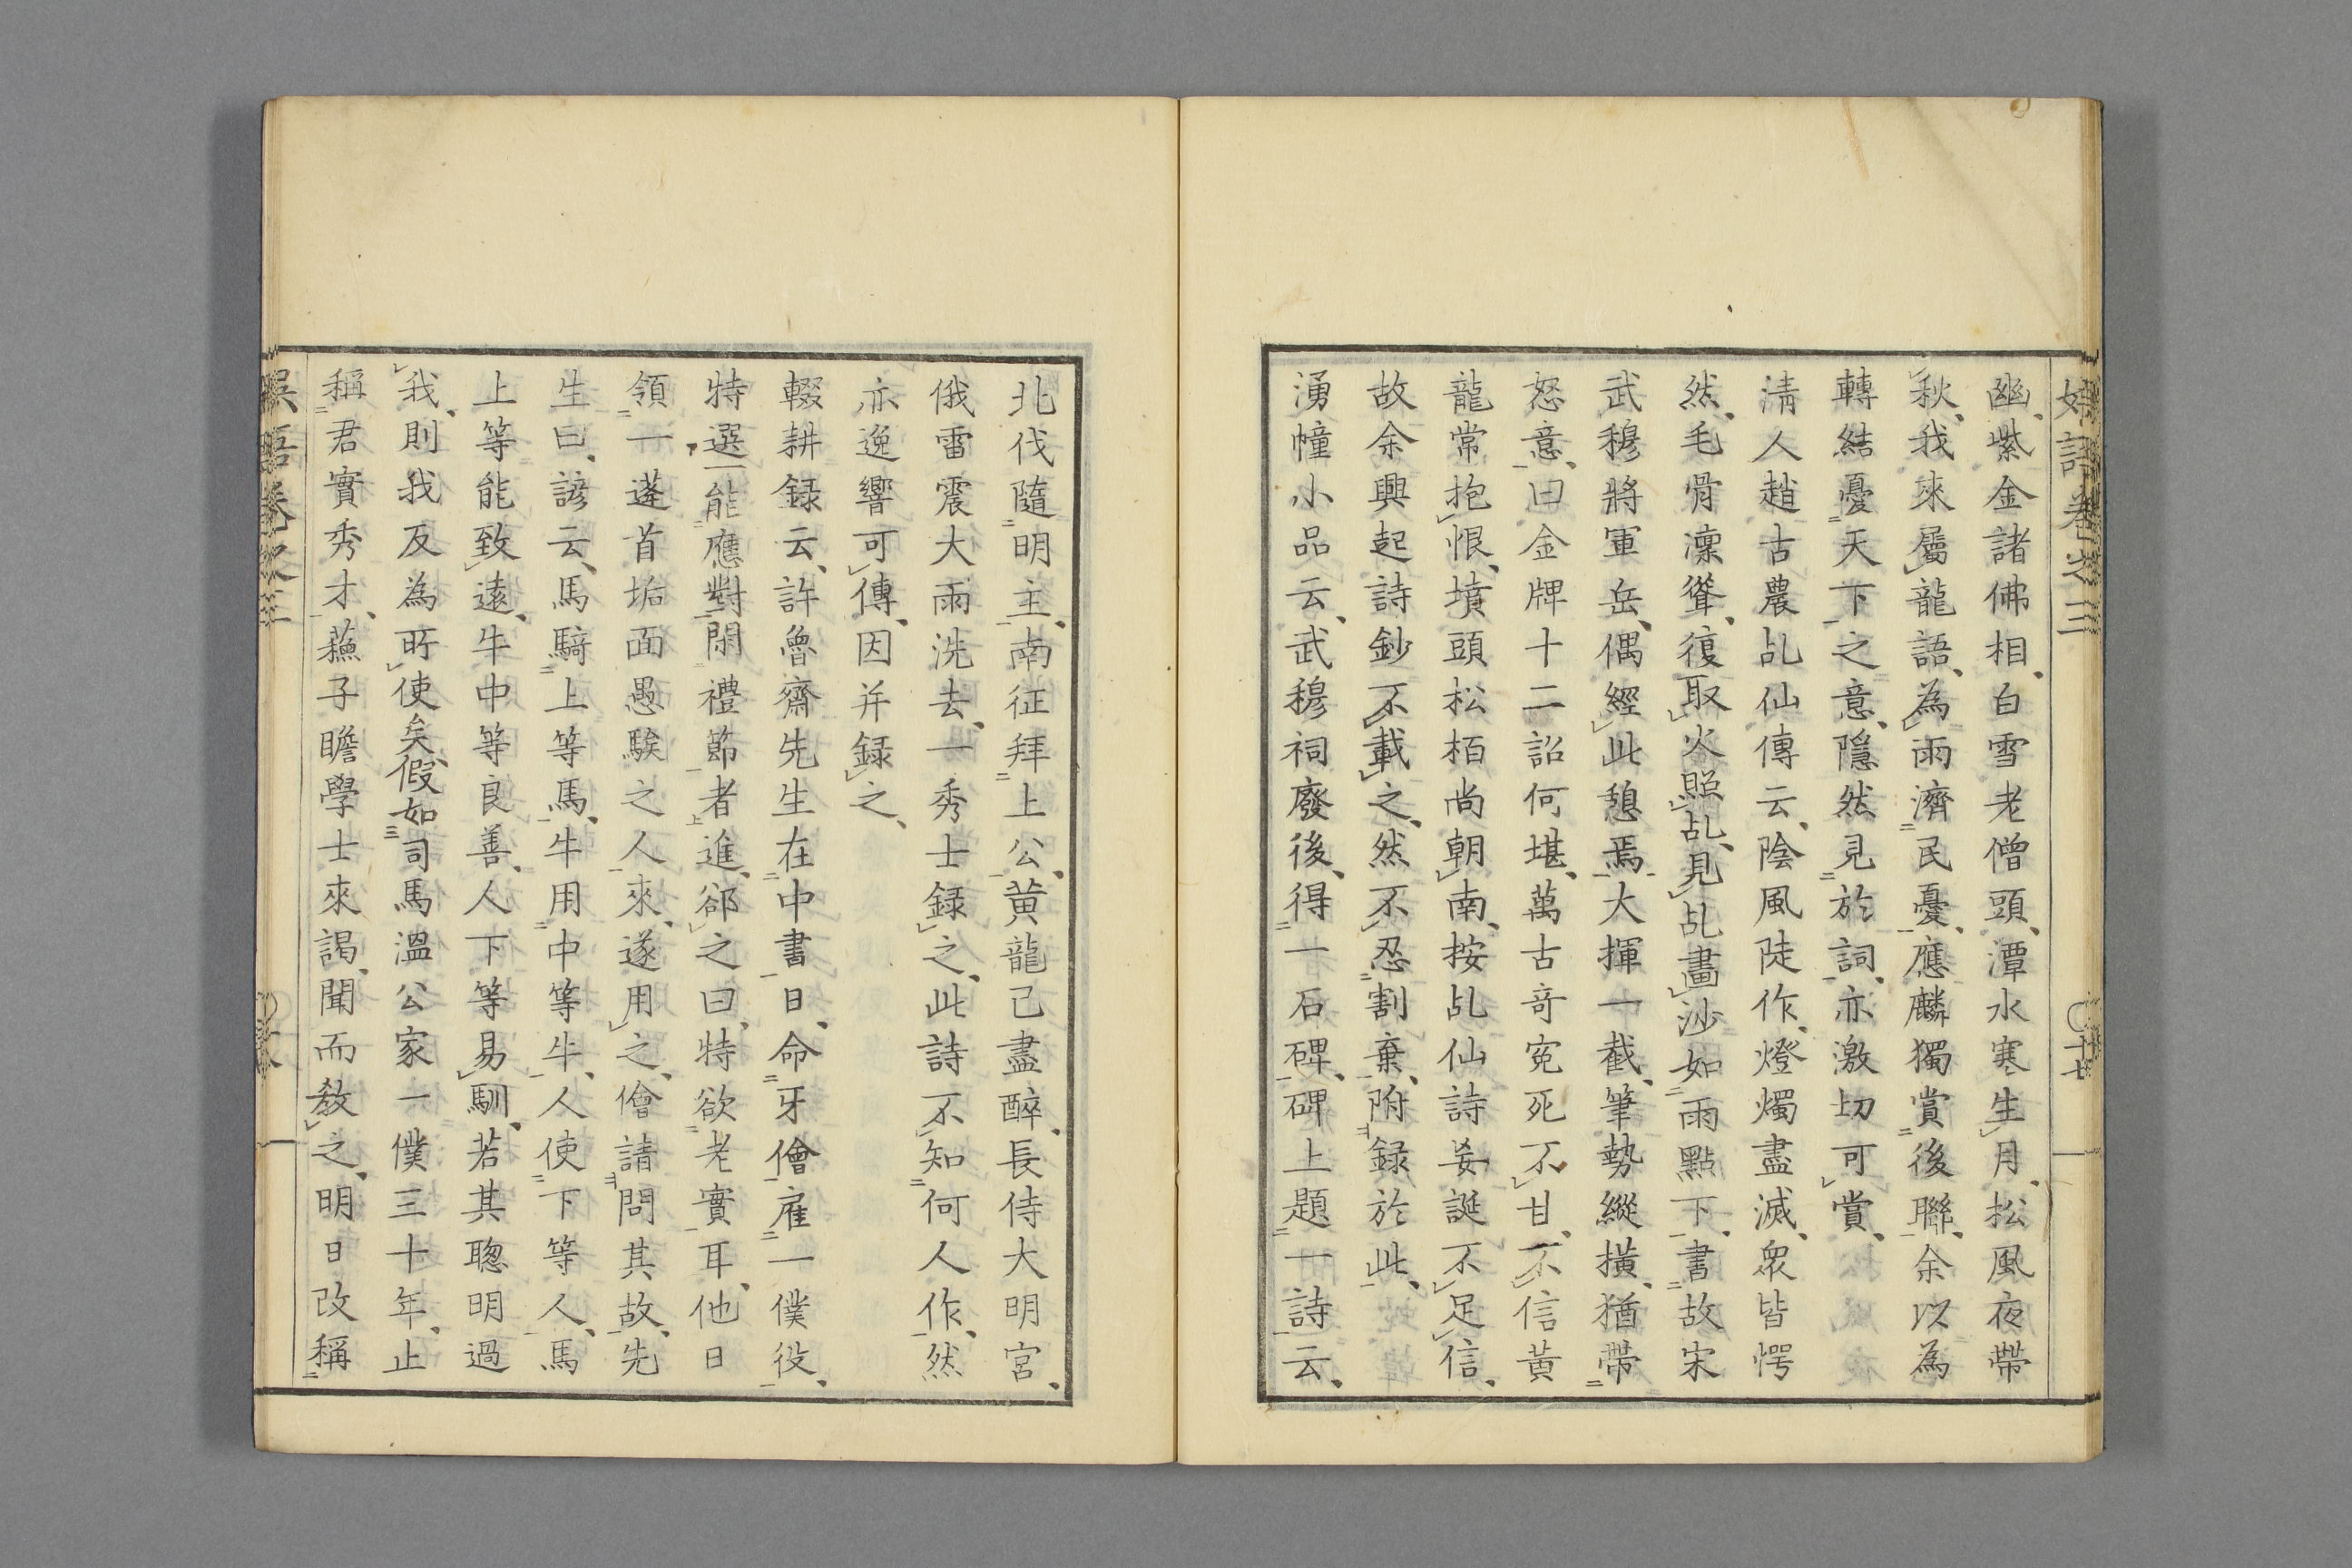 幽、紫金諸佛相、白雪老僧頭、潭水寒生月、松風夜帶
秋、我來屬龍語、為雨濟民憂、應麟獨賞後聯、余以為
轉結憂天下之意、隱然見於詞、亦激切可賞、
清人趙古農乩仙傳云、陰風陡作、燈燭盡滅、衆皆愕
然、毛骨凜聳、復取火照乩、見乩畫沙如雨點下、書故宋
武穆將軍岳、偶經此憩焉、大揮一截、筆勢縱横、猶帶
怒意、曰金牌十二詔何堪、萬古奇寃死不甘、不信黄
龍常抱恨、墳頭松栢尚朝南、按乩仙詩妄誕不足信、
故余興起詩鈔不載之、然不忍割棄、附録於此、
湧幢小品云、武穆祠廢後、得一石碑、碑上題一詩云、
北伐隨明主、南征拜上公、黄龍已盡醉、長侍大明宮、
俄雷震大雨洗去、一秀士録之、此詩不知何人作、然
亦逸響可傳、因并録之、
輟耕録云、許魯齋先生在中書日、命牙儈雇一僕役、
特選一能應對閑禮節者進、郤之曰、特欲老實耳、他日
領一蓬首垢面愚騃之人來、遂用之、儈請問其故、先
生曰、諺云、馬騎上等馬、牛用中等牛、人使下等人、馬
上等能致遠、牛中等良善、人下等易馴、若其聰明過
我、則我反為所使矣、假如司馬溫公家一僕三十年、止
稱君實秀才、蘓子瞻學士來謁、聞而教之、明日改稱